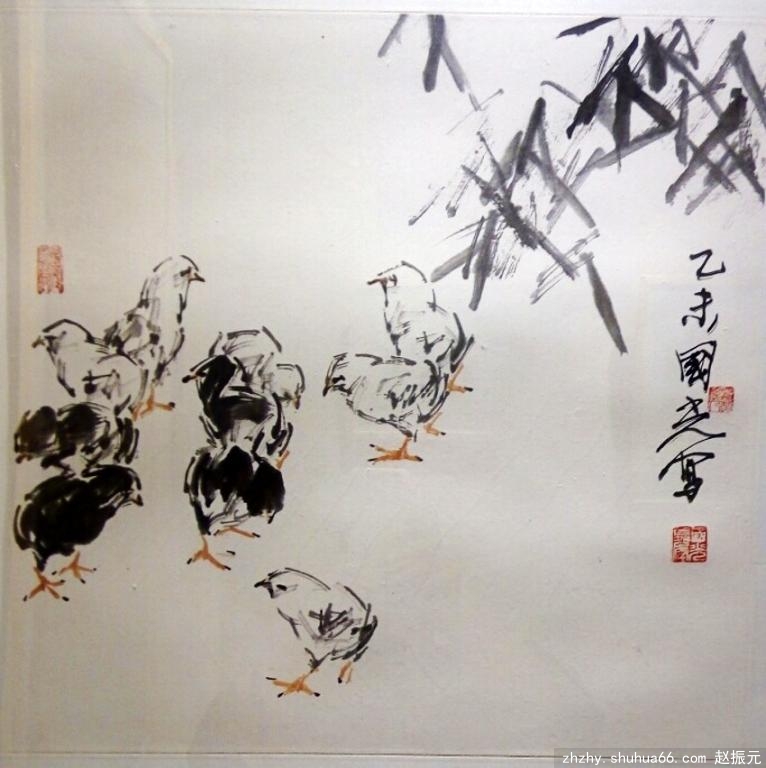 乙未國光寫
zhzhy.shuhua66.com 赵振元